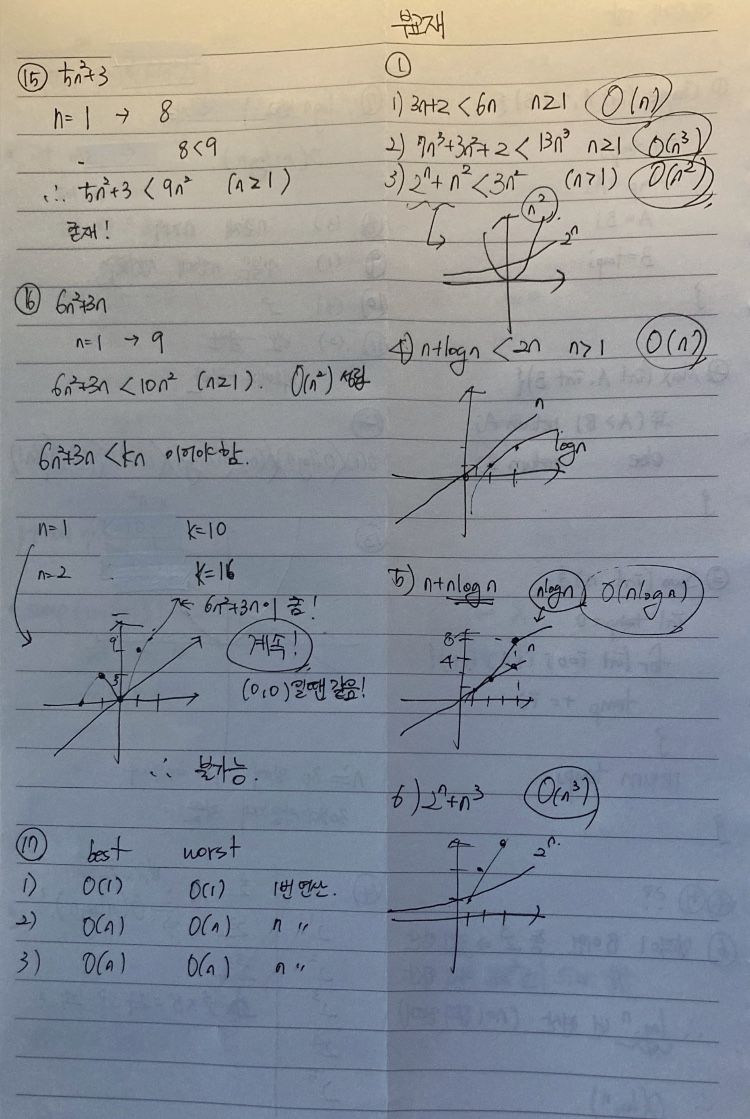 ⑮ 5n²+3
n=1 → 8
8<9
∴ 5n²+3 < 9n² (n≥1)
존재!
⑯ 6n²+3n
n=1 → 9
6n²+3n < 10n² (n≥1). O(n²) 성립
6n²+3n < kn 이어야함.
n=1 k=10
n=2 k=16
6n²+3n이 큼!
9
3
계속!
(0,0)일땐 같음!
∴ 불가능.
⑰ best worst
1) O(1) O(1) 1번 연산.
2) O(n) O(n) n 〃
3) O(n) O(n) n 〃
부교재
①
1) 3n+2 < 6n n≥1 O(n)
2) 7n³+3n²+2 < 13n³ n≥1 O(n³)
3) 2ⁿ+n² < 3n² (n>1) O(n²)
n²
2ⁿ
4) n+logn < 2n n>1 O(n)
n
logn
5) n+nlogn nlogn O(nlogn)
8
4
n
6) 2ⁿ+n³ O(n³)
2ⁿ